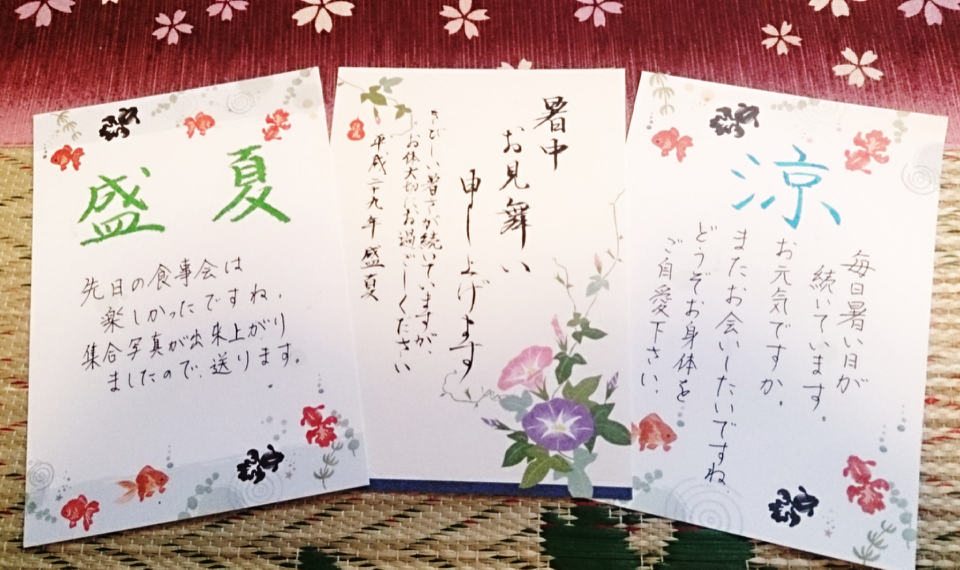 盛夏
先日の食事会は
楽しかったですね。
集合写真が出来上がり
ましたので、送ります。
暑中
お見舞い
申し上げます
きびしい暑さが続いていますが、
お体大切にお過ごしください
平成二十九年 盛夏
涼
毎日暑い日が
続いています。
お元気ですか。
またお会いしたいですね
どうぞお身体を
ご自愛下さい。